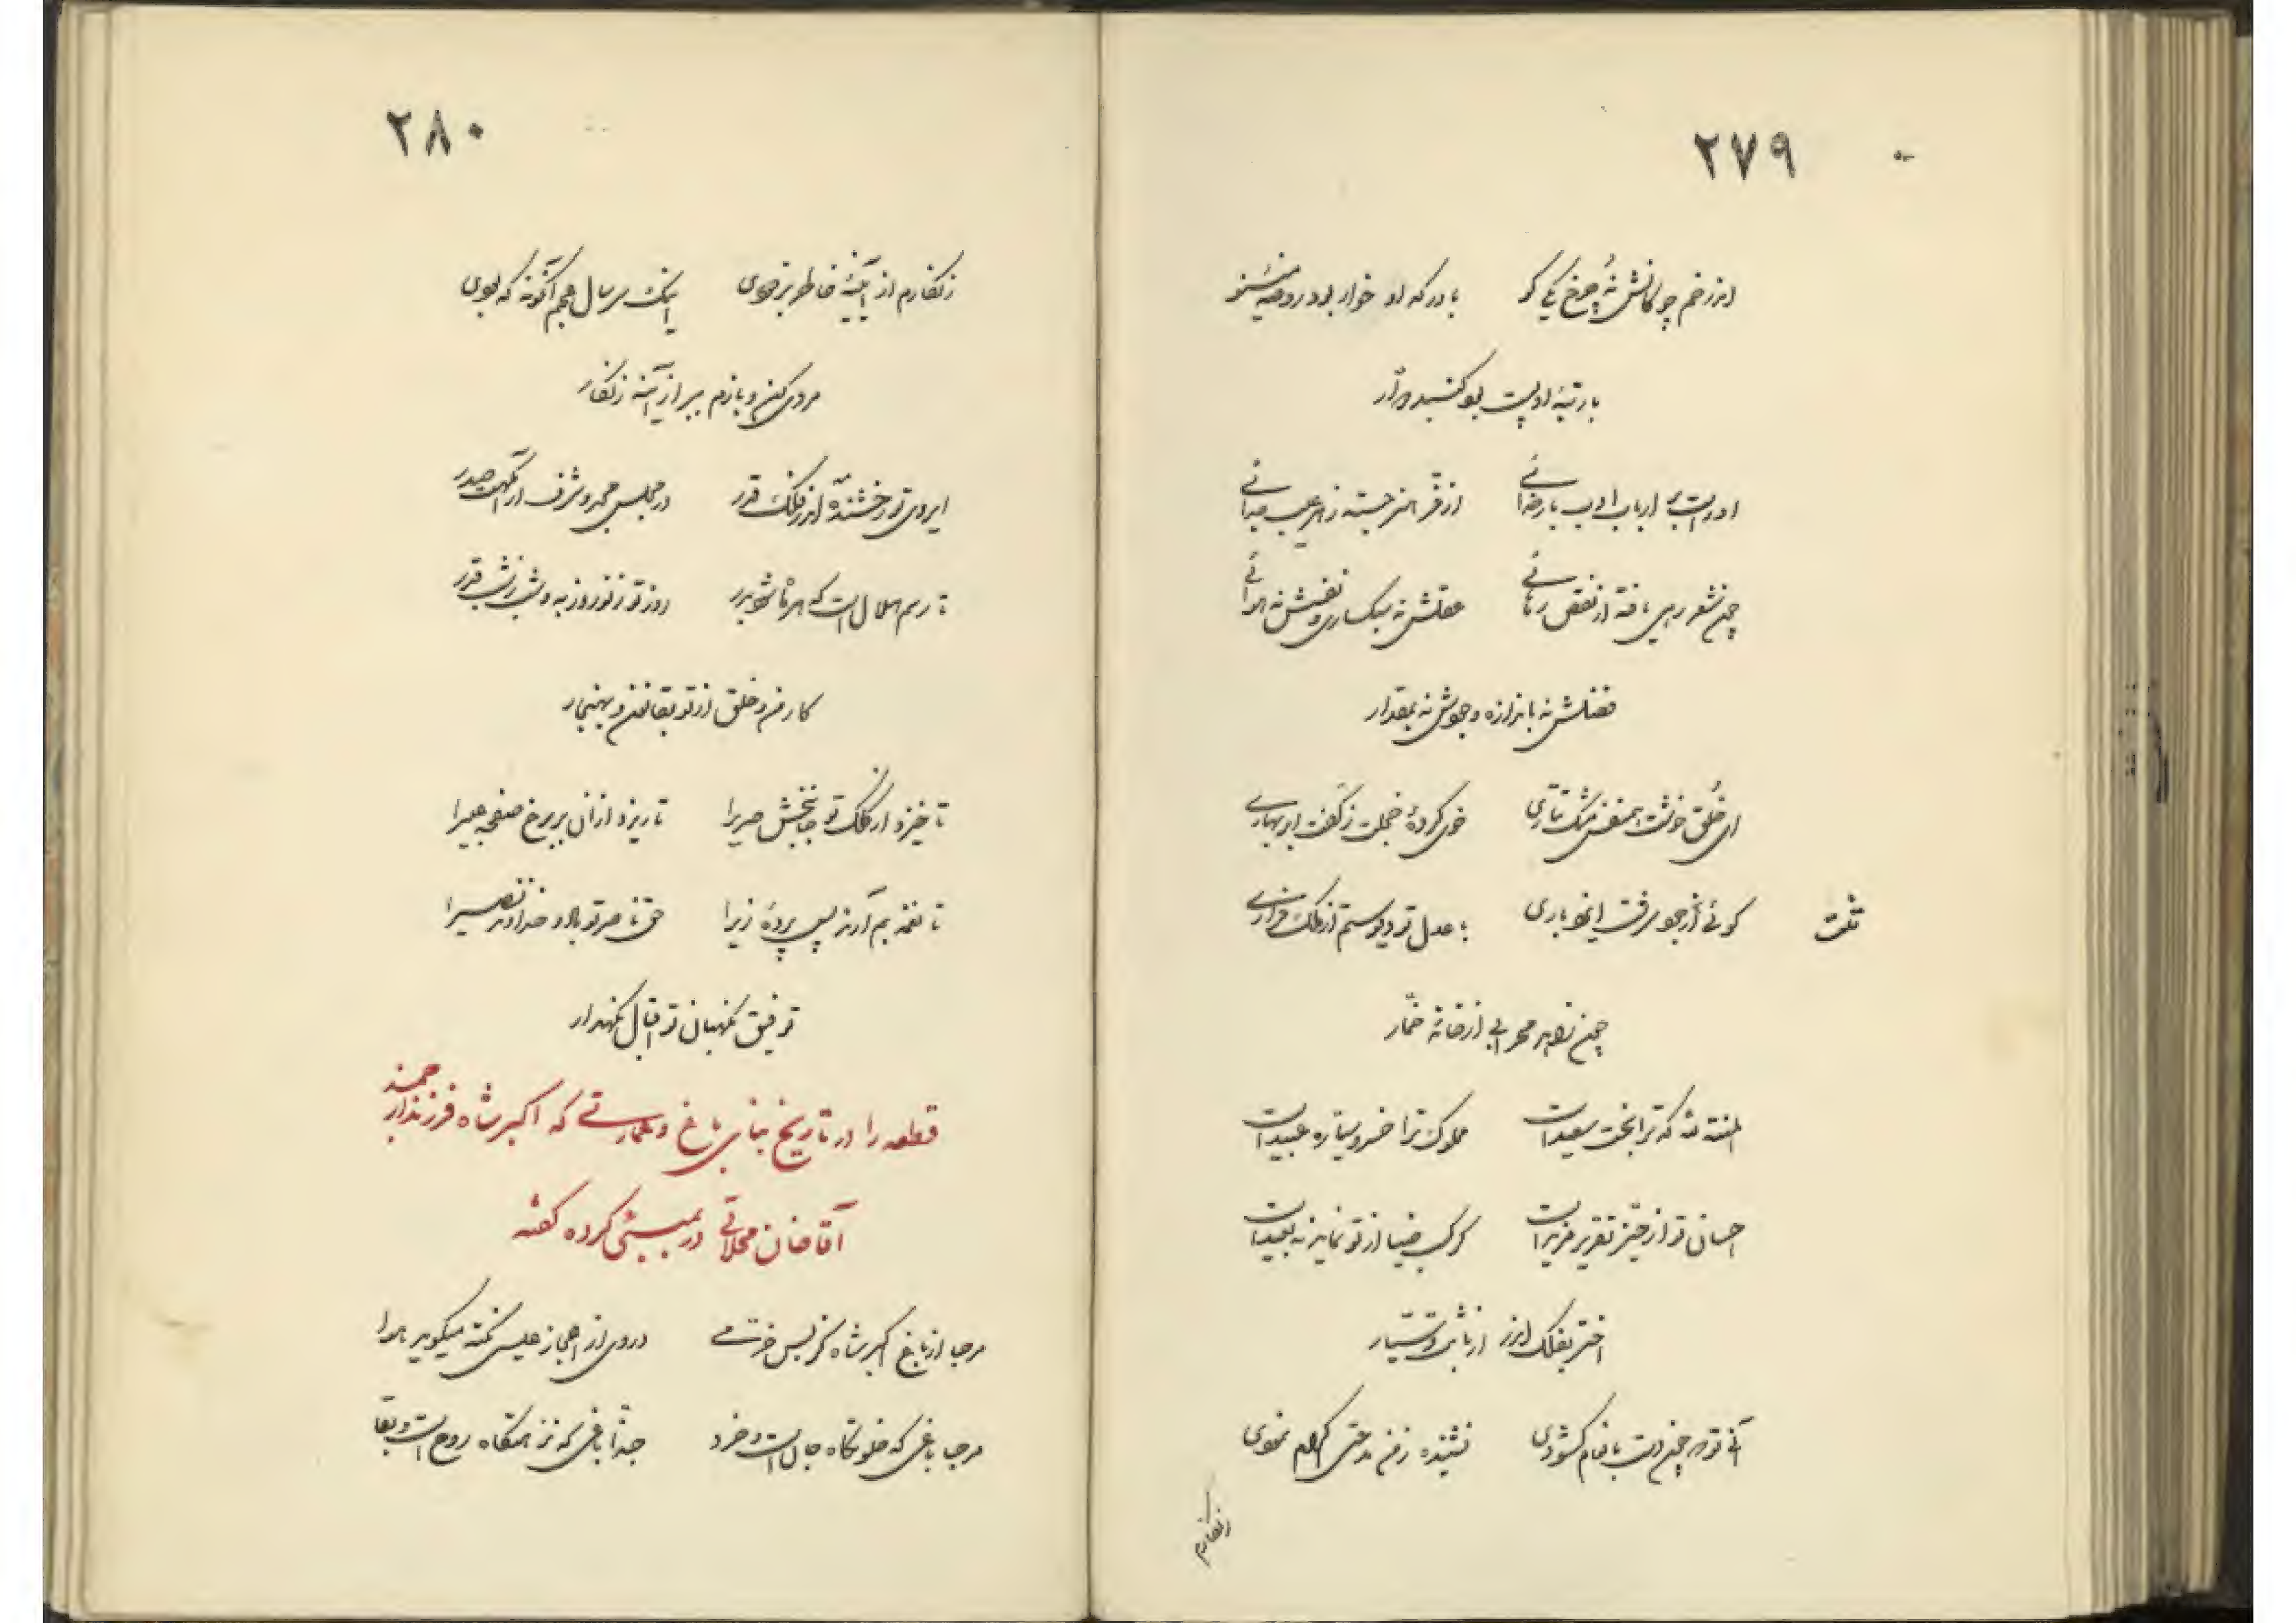 ۲۷۹
اندر خم چوگانش نُه چرخ یکی گو با درگه او خوار بود روضهٔ مینو
با رتبهٔ او پست بود گنبد دوار
او راست بر ارباب ادب بار خدائی از فر هنر جسته ز هر عیب جدائی
چون شعر رهی یافته از نقص رهائی عقلش نه سبکساری و نفسش نه هوائی
فضلش نه باندازه و جودش نه بمقدار
ای خُلق خوشت همنفس مشک تتاری خوی کردهٔ خجلت ز کفت ابر بهاری
گوئی از جو رفت اینجو باری با عدل تو دیو ستم از ملک فراری
تفت
چون زاهد محرابی از خانهٔ خمّار
المنة لله که ترا بخت سعید است مملوک ترا خسرو سیاره عبید است
احسان تو از حیّز تقریر مزید است گر کسب ضیا از تو نماید نه بعید است
اختر بفلک اندر از ثابت و سیّار
آنی تو که چون دست بانعام گشودی نشنیده ز من مدحتی اکرام نمودی
زنگارم
۲۸۰
زنگارم از آیینهٔ خاطر بزدودی اینک سر سال عجم آنگونه که بودی
مردی کن و بازم ببر از آینه زنگار
ای روی تو رخشنده اندر فلک قدر در مجلس مجد و شرف ارامگهت صدر
تا رسم هلال است که هر ماه شود بدر روز تو ز نوروز به و شب ز شب قدر
کار من و خلق از تو بقانون و بهنجار
تا خیزد از کلک تو جانبخش صریرا تا ریزد از آن بر رخ صفحه عبیرا
تا نغمه بم آرند پس پردهٔ زیرا حق ناصر تو باد و خداوند نصیرا
توفیق نگهبان تو اقبال نگهدار
قطعه را در تاریخ بنای باغ و عمارتی که اکبر شاه فرزند ارجمند
آقا خان محلاتی در بمبئی کرده گفته
مرحبا از باغ اکبر شاه کز بس خرمی در وی از اعجاز عیسی نکته میگوید هوا
مرحبا باغی که خلوتگاه جان است و خرد حبذا باغی که نزهتگاه روح است و بقا